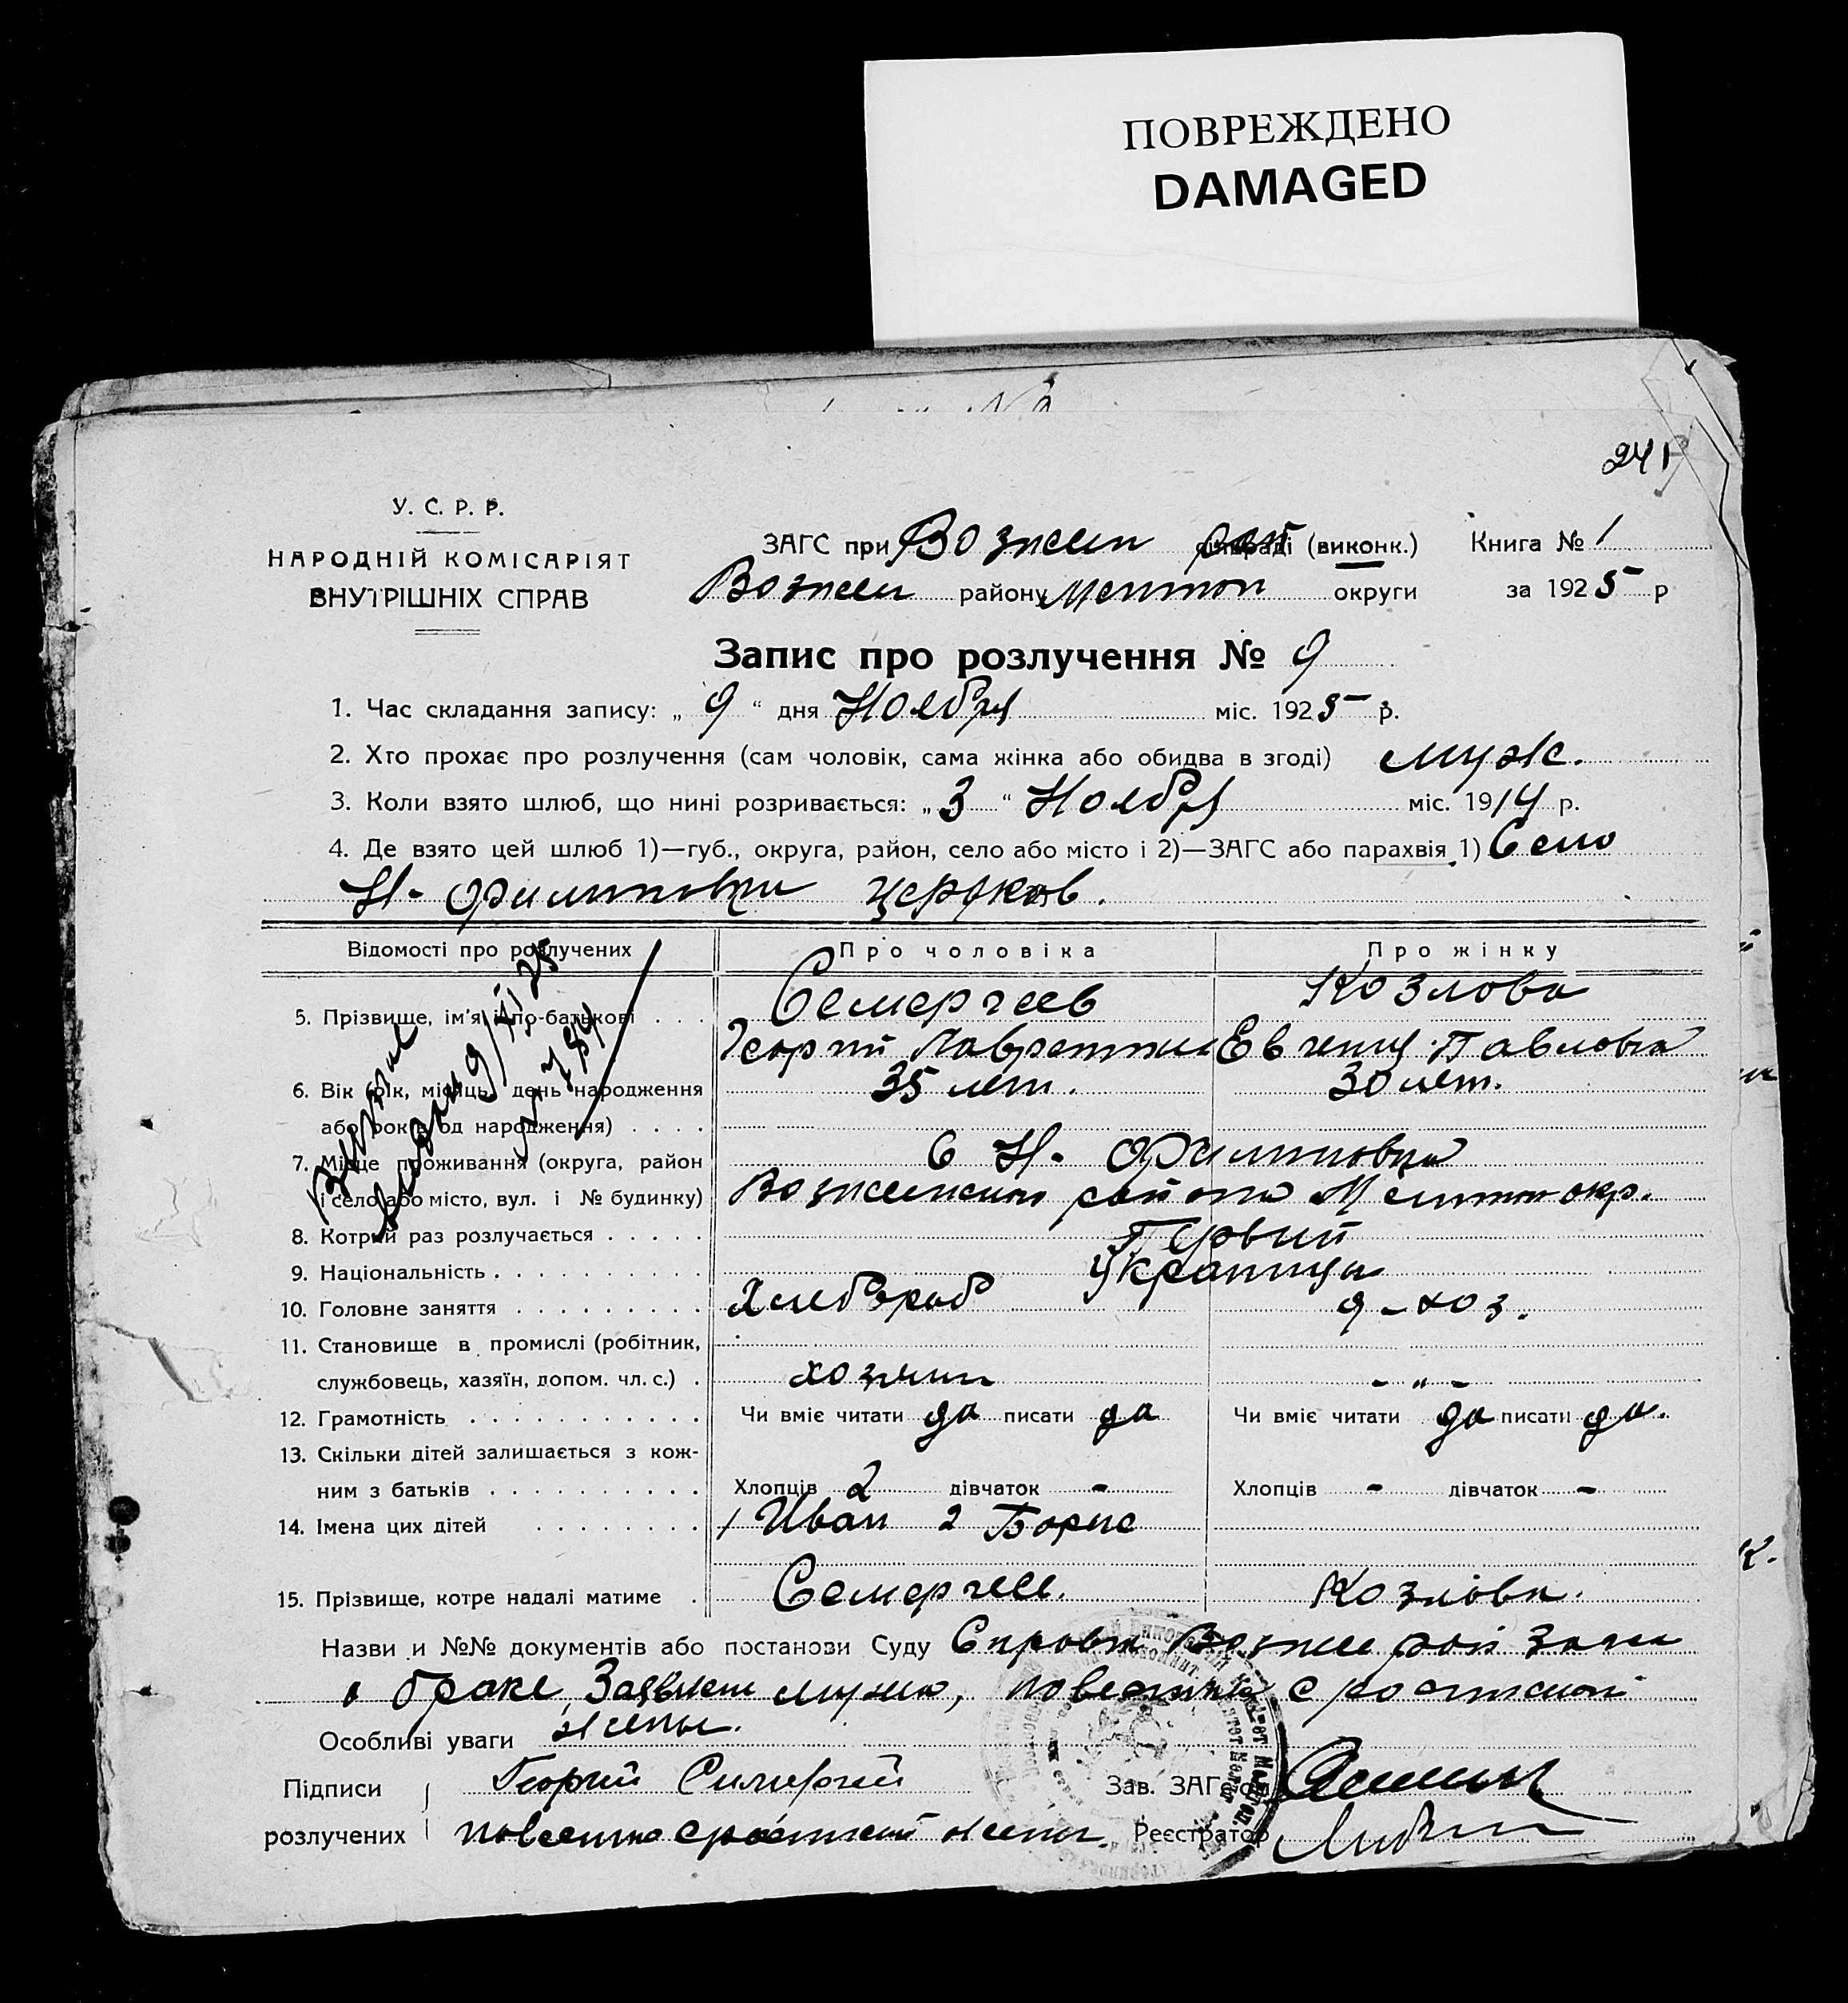 ПОВРЕЖДЕНО
DAMAGED
241
У. С. Р. Р.
НАРОДНІЙ КОМІСАРІЯТ
ВНУТРІШНІХ СПРАВ
ЗАГС при Вознесен рай (виконк.) Книга № 1
Вознесен району Мелитоп округи за 1925 р
Запис про розлучення № 9
1. Час складання запису: „ 9 “ дня Ноября міс. 1925 р.
2. Хто прохає про розлучення (сам чоловік, сама жінка або обидва в згоді) муж.
3. Коли взято шлюб, що нині розривається: „ 3 “ Ноября міс. 1914 р.
4. Де взято цей шлюб 1)—губ., округа, район, село або місто і 2)—ЗАГС або парахвія 1) Село
Н- Филиповки церковь.
Відомості про розлучених Про чоловіка Про жінку
5. Прізвище, ім'я і по-батькові . . . Семергеев Козлова
Георгий Евгения Павловна
6. Вік (рік, місяць, день народження 35 лет. 30 лет.
або років од народження) . . . .
7. Місце проживання (округа, район С Н- Филиповка
і село або місто, вул. і № будинку) района Мелитоп окр.
8. Котрий раз розлучається . . . . . Первий
9. Національність . . . . . . . . . . Украинцы
10. Головне заняття . . . . . . . . . Хлебороб д-хоз.
11. Становище в промислі (робітник,
службовець, хазяїн, допом. чл. с.) . хозяин - „ -
12. Грамотність . . . . . . . . . . . Чи вміє читати да писати да Чи вміє читати да писати да.
13. Скільки дітей залишається з кож-
ним з батьків . . . . . . . . . . Хлопців 2 дівчаток - Хлопців - дівчаток -
14. Імена цих дітей . . . . . . . . 1 Иван 2 Борис
15. Прізвище, котре надалі матиме . Семергеев. Козлова.
Назви и №№ документів або постанови Суду Справка рай Загса
о браке, Заявление мужа, повестка с роспиской
Особливі уваги жены.
Підписи Георгий Зав. ЗАГСом
розлучених повестка с роспиской жены. Реєстратор